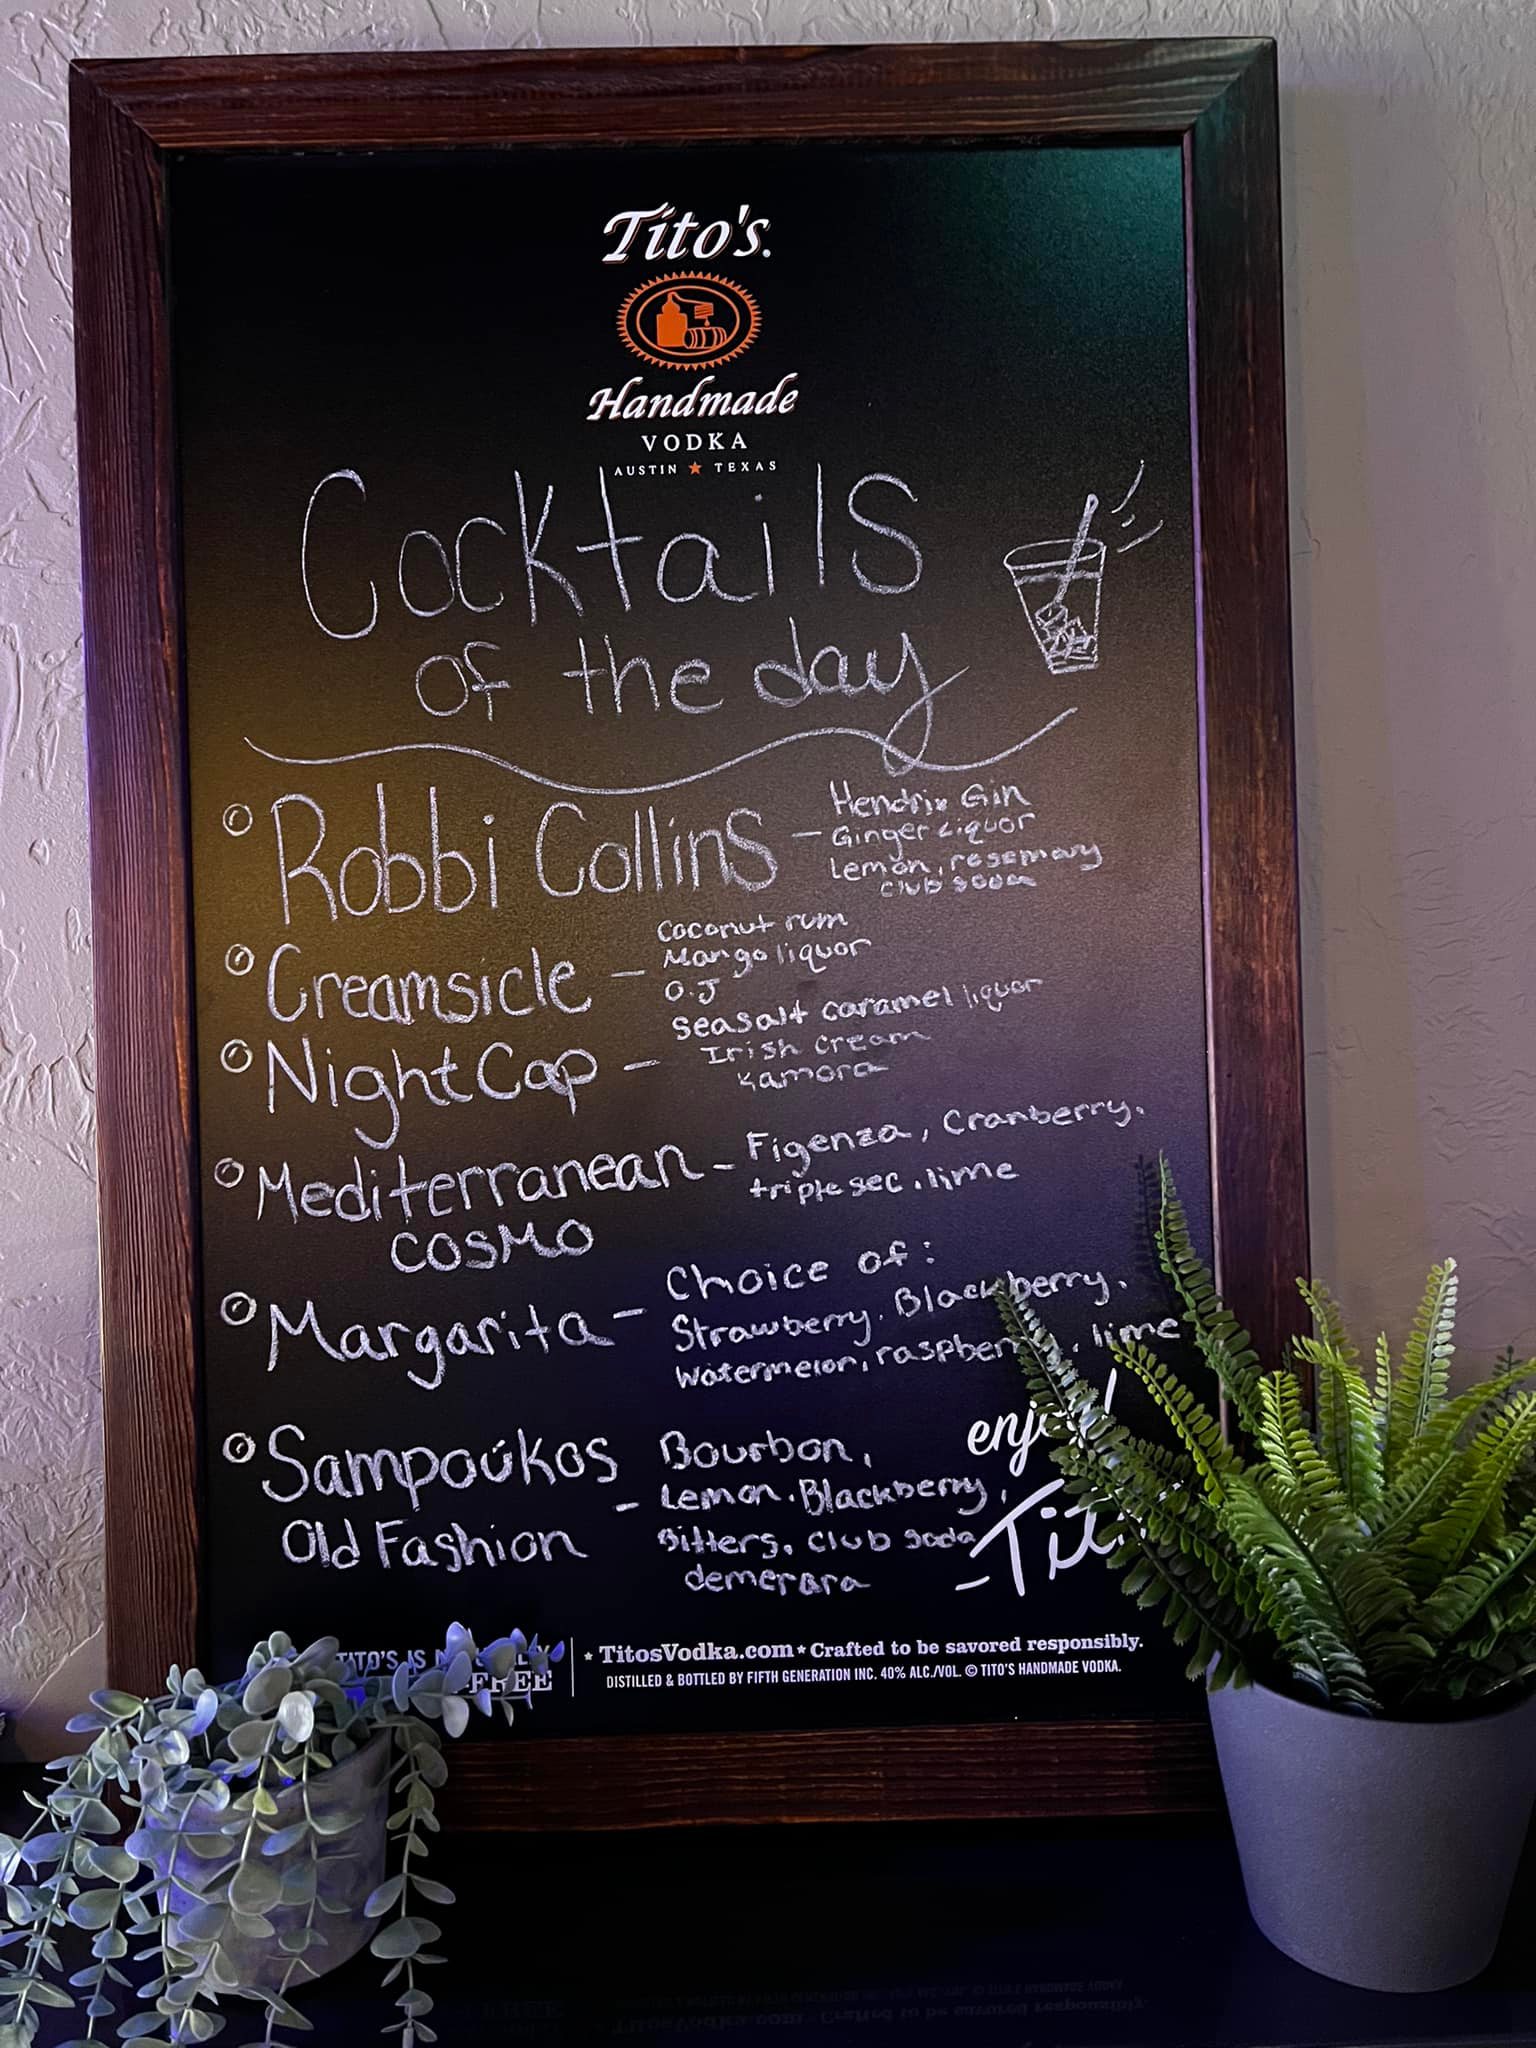 Tito's.
Handmade
VODKA
AUSTIN ★ TEXAS
Cocktails
of the day
Robbi Collins - Hendrix Gin
Ginger Liquor
Lemon, rosemary
club soda
Creamsicle - Coconut rum
Mango liquor
O.J
Night Cap - Seasalt caramel liquor
Irish cream
Kamora
Mediterranean - Figenza, Cranberry,
triple sec, lime
COSMO
Margarita - Choice of:
Strawberry, Blackberry,
Watermelon, raspberry, lime
Sampoúkos Old Fashion - Bourbon,
Lemon, Blackberry,
Bitters, club soda
demerara
enjoy!
TITO'S IS
FREE
★ TitosVodka.com ★ Crafted to be savored responsibly.
DISTILLED & BOTTLED BY FIFTH GENERATION INC. 40% ALC./VOL. © TITO'S HANDMADE VODKA.